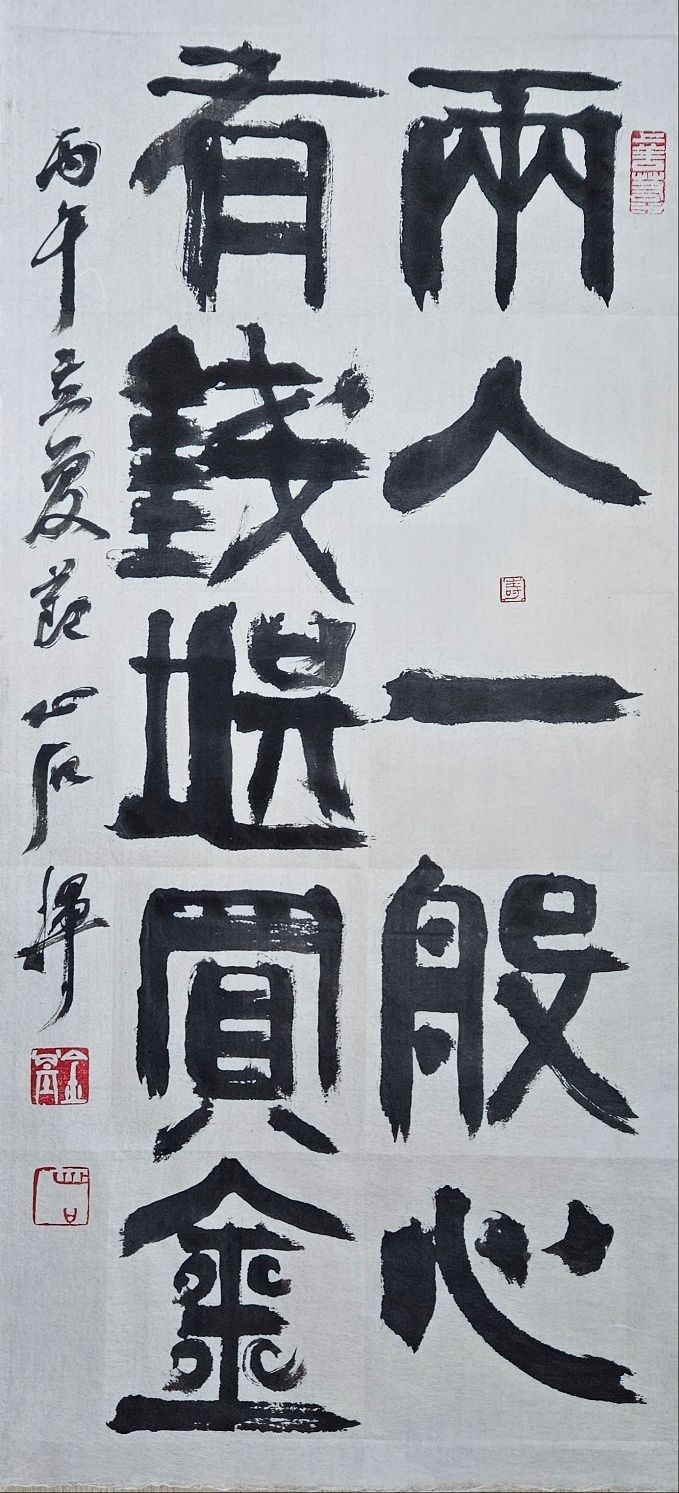 兩人一般心
有錢堪買金
丙午立夏節心石揮
壽